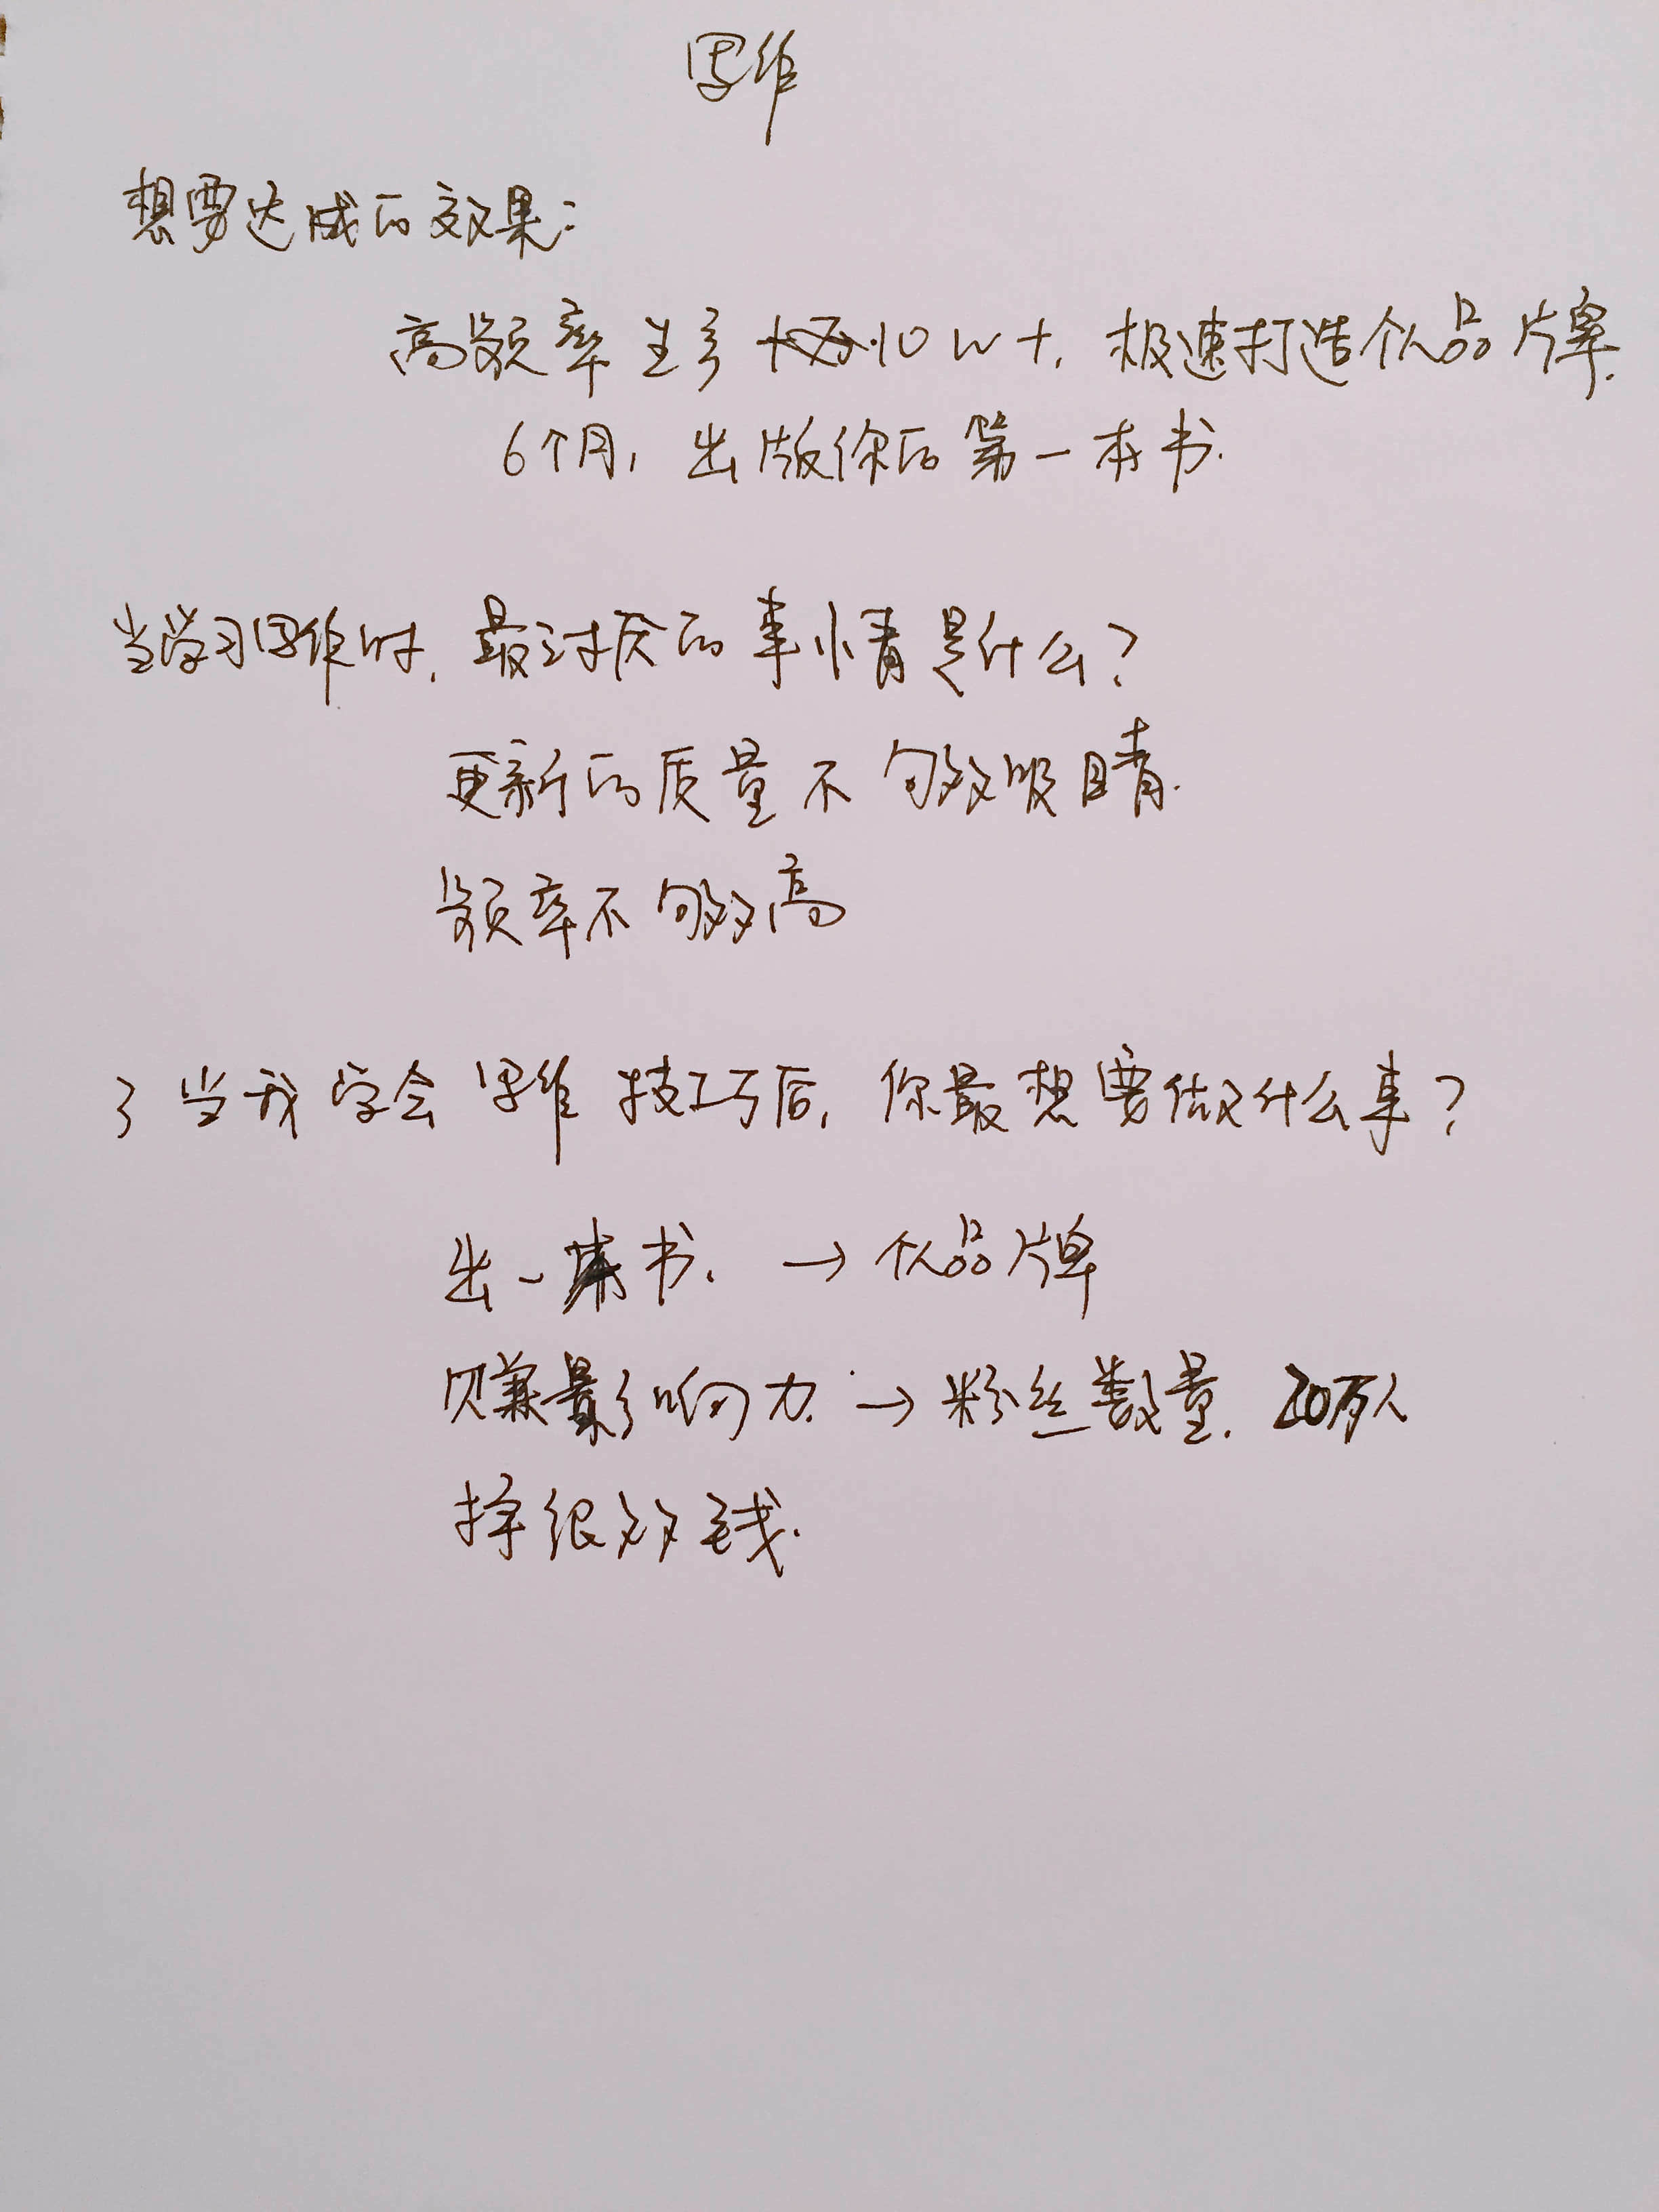 思维
想要达成的效果:
高频率生产10W+, 极速打造个人品牌.
6个月, 出版你的第一本书.
当学习思维时, 最讨厌的事情是什么?
更新的质量不够吸睛.
频率不够高
3 当我学会思维技巧后, 你最想要做什么事?
出一本书. → 个人品牌
赚影响力. → 粉丝数量. 20万人
挣很多钱.